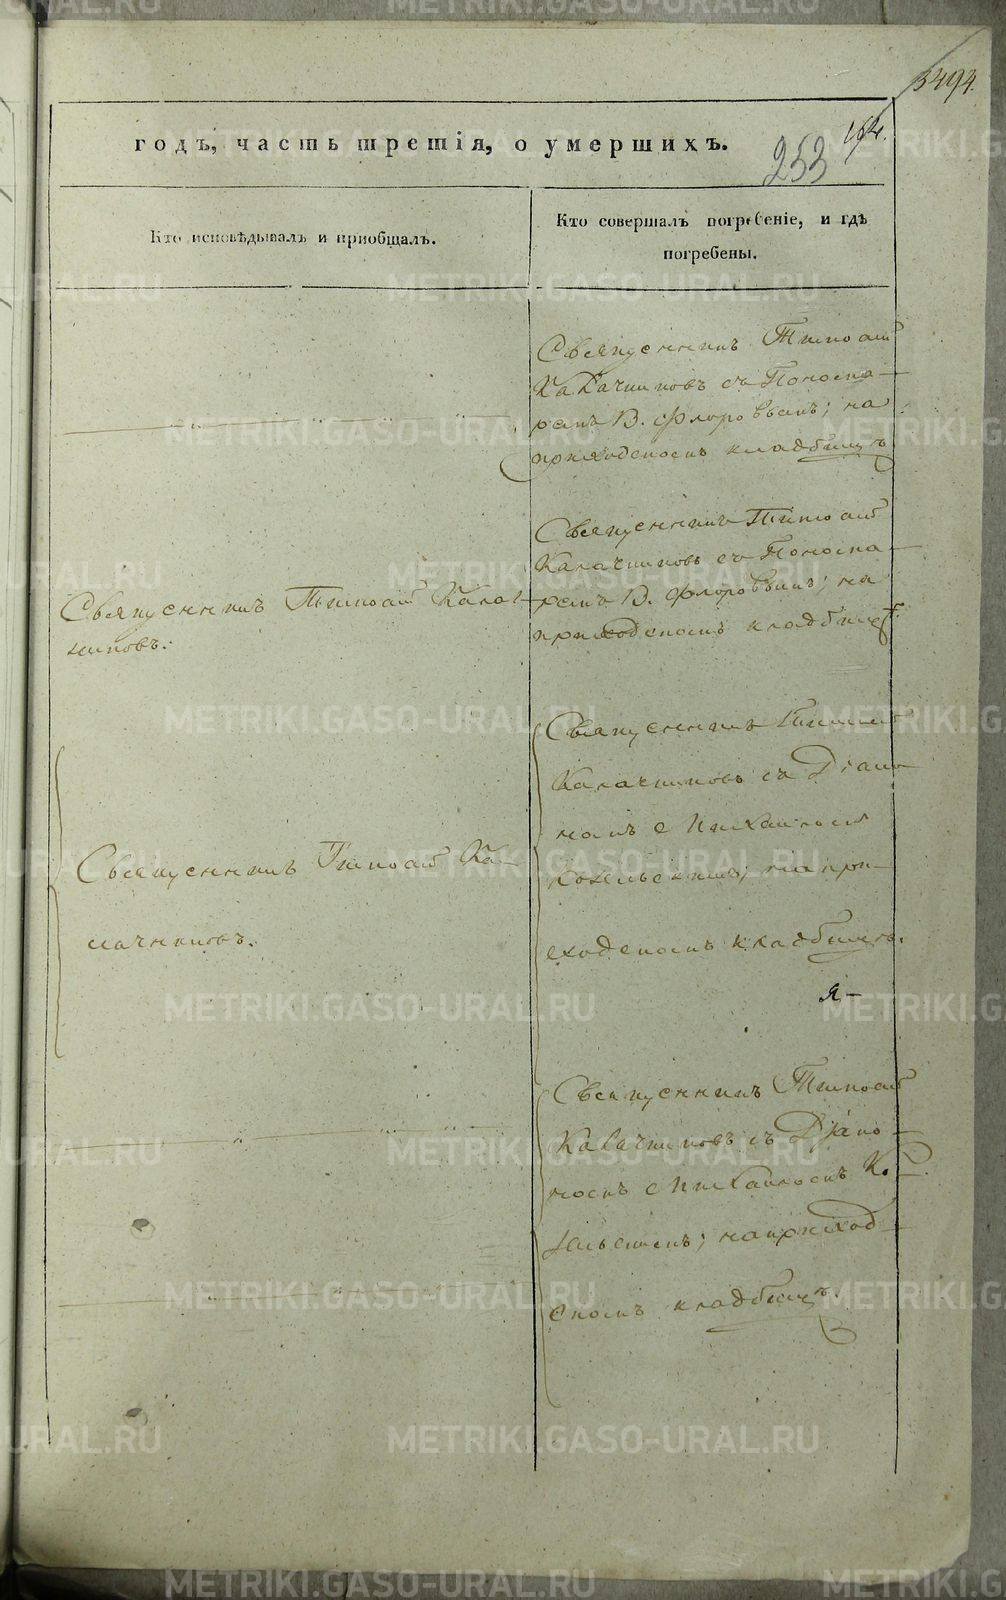 3494.
годъ, часть третія, о умершихъ.
164.
253
Кто исповѣдывалъ и приобщалъ.
Кто совершалъ погребеніе, и гдѣ
погребены.
Священникъ Тимоѳей
Калачниковъ съ Поно­ма-
ремъ В. Флоровымъ; на
приходскомъ кладбищѣ
Священникъ Тимоѳей
Калачниковъ съ Понома-
ремъ В. Флоровымъ; на
приходскомъ кладбищѣ.
Священникъ Тимоѳей Калач-
никовъ.
Священникъ Тимоѳей
Калачниковъ съ Діако-
номъ Михаиломъ
на при-
ходскомъ кладбищѣ.
Священникъ Тимоѳей Ка-
лачниковъ.
Я-
Священникъ Тимоѳей
Калачниковъ съ Діако-
номъ Михаиломъ Ко-
на приход-
скомъ кладбищѣ.
METRIKI.GASO-URAL.RU